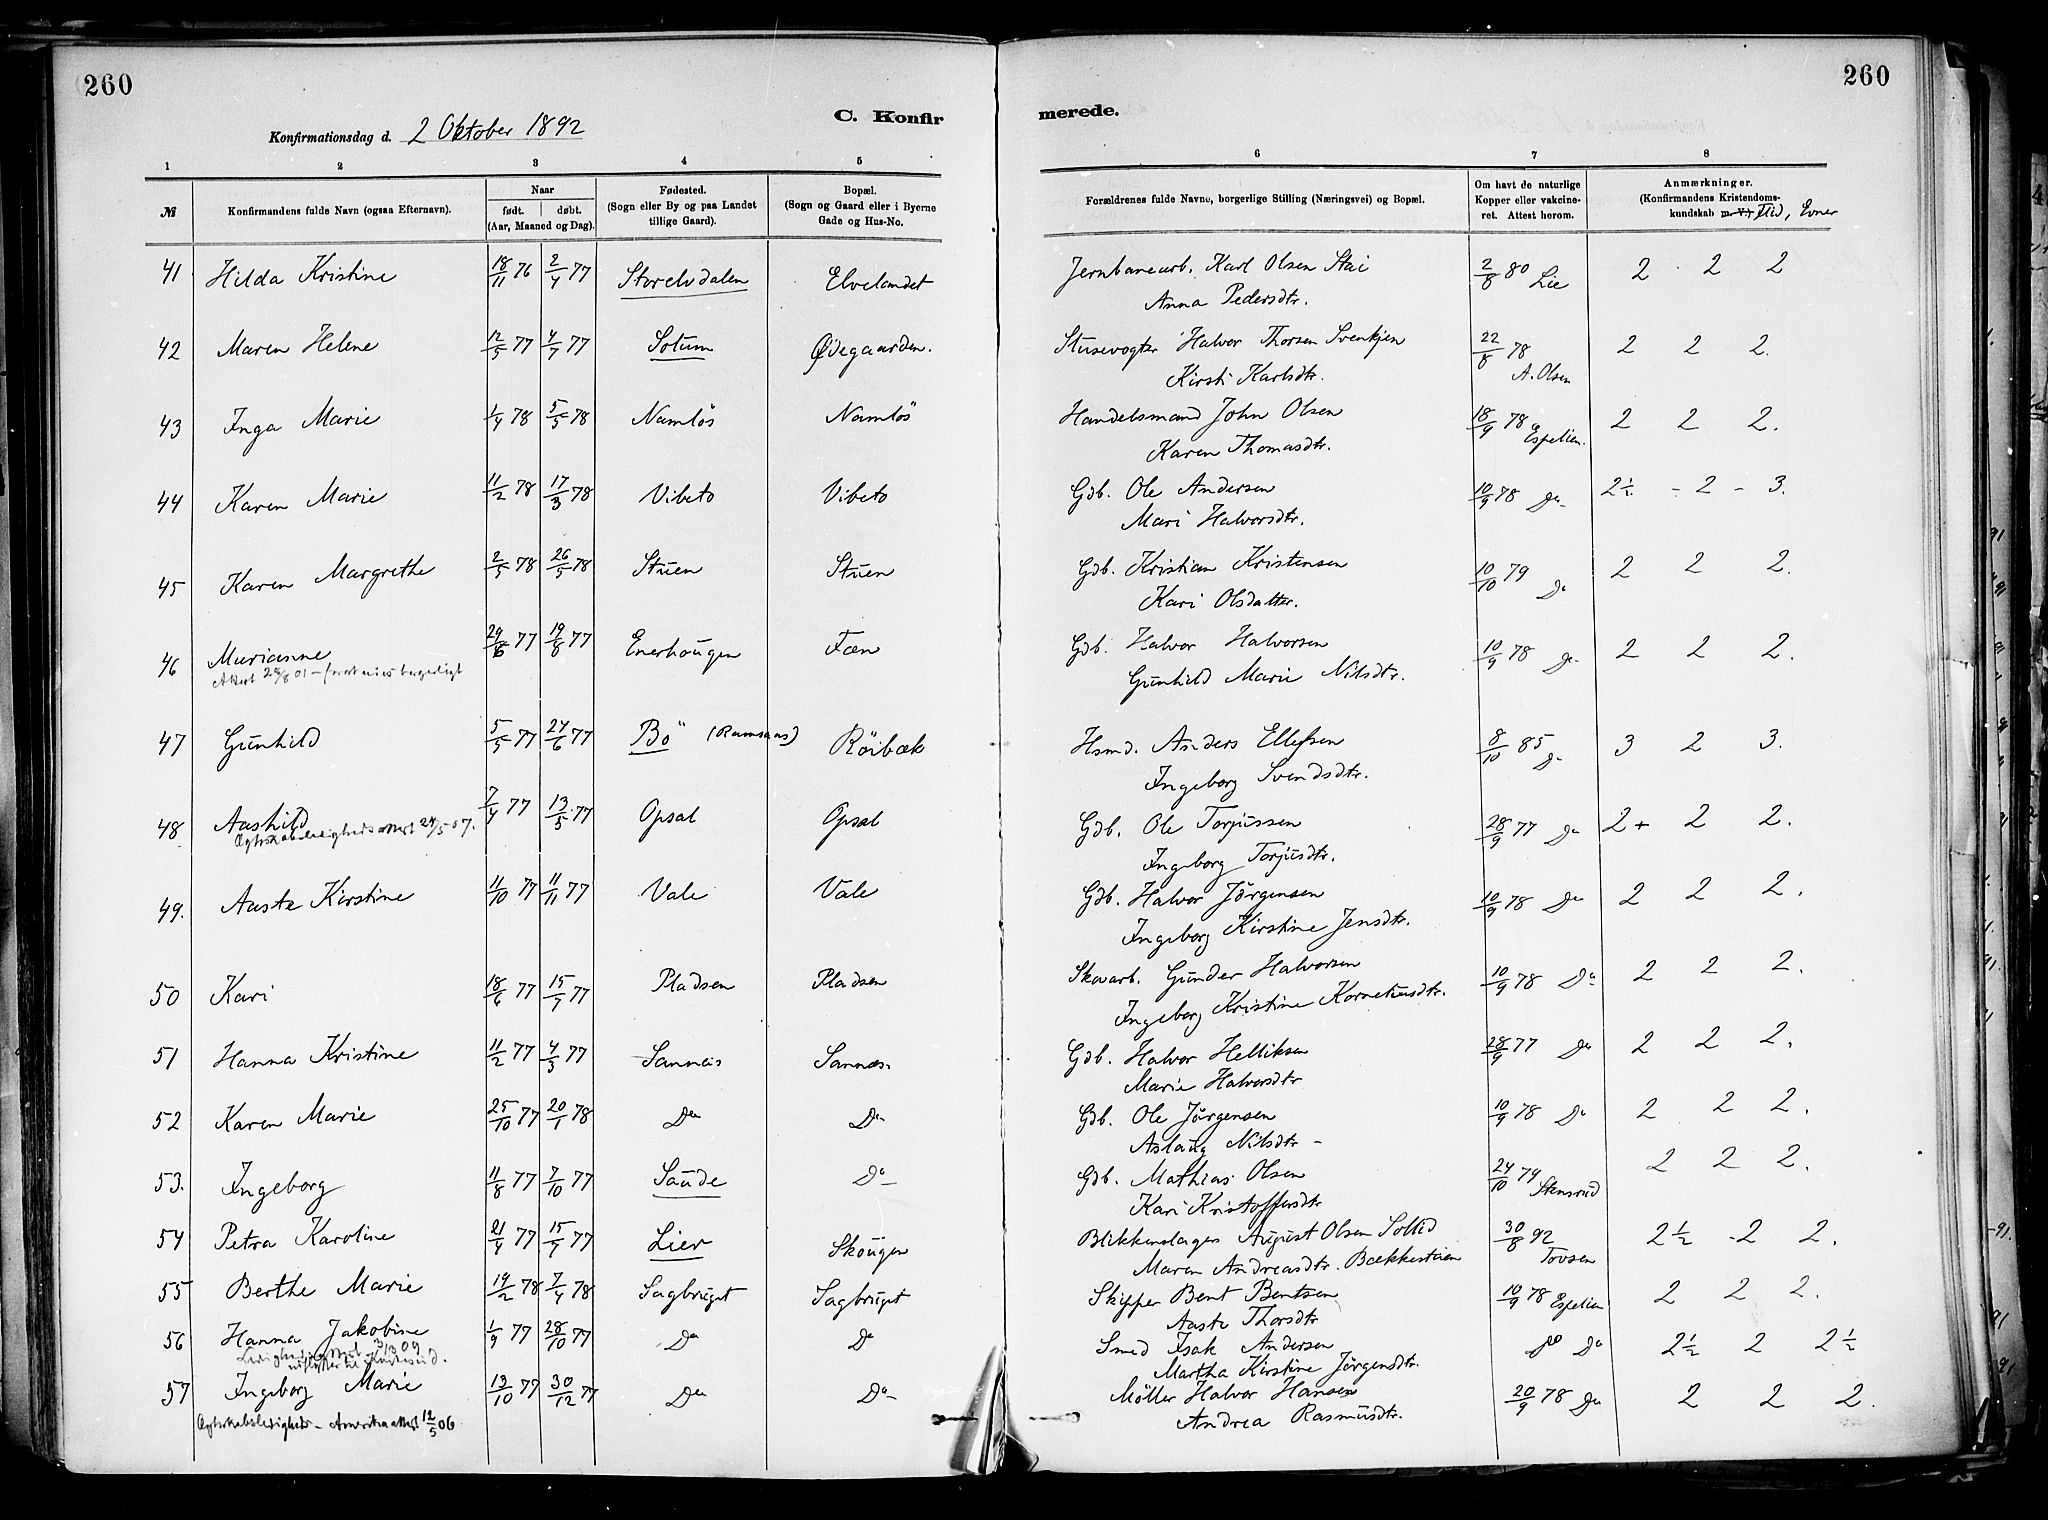 260
260
C. Konfir
merede.
Konfirmationsdag d. 2 Oktober 1892
1 2 3 4 5 6 7 8
№ Konfirmandens fulde Navn (ogsaa Efternavn). Naar født. døbt. (Aar, Maaned og Dag). Fødested. (Sogn eller By og paa Landet tillige Gaard). Bopæl. (Sogn og Gaard eller i Byerne Gade og Hus-No. Forældrenes fulde Navne, borgerlige Stilling (Næringsvei) og Bopæl. Om havt de naturlige Kopper eller vakcineret. Attest herom. Anmærkninger. (Konfirmandens Kristendomskundskab m. V.) Flid, Evner
41 Hilda Kristine 18/11 76 2/4 77 Storelvdalen Elvelandet Jernbanearb. Karl Olsen Stai 2/8 80 Lie 2 2 2
Anna Pedersdtr.
42 Maren Helene 12/5 77 4/7 77 Solum Ødegaarden. Slusevogter Halvor Thorsen Svenkjen 22/8 78 2 2 2.
Kirsti Karlsdtr. A. Olsen
43 Inga Marie 1/4 78 5/5 78 Namløs Namløs Handelsmand John Olsen 18/9 78 Espelien. 2 2 2.
Karen Thomasdtr.
44 Karen Marie 11/2 78 17/3 78 Vibeto Vibeto Gdb. Ole Andersen 10/9 78 Do 2½ - 2 - 3.
Mari Halvorsdtr.
45 Karen Margrethe 2/5 78 26/5 78 Stuen Stuen Gdb. Kristian Kristensen 10/10 79 Do 2 2 2.
Kari Olsdatter.
46 Marianne 29/6 77 19/8 77 Enerhougen Fæn Gdb. Halvor Halvorsen 10/9 78 Do 2 2 2.
Gunhild Marie Nilsdtr.
47 Gunhild 5/5 77 24/6 77 Bö (Ramsaas) Röibæk Hsmd. Anders Ellefsen 8/10 85 Do 3 2 3.
Ingeborg Svendsdtr.
48 Aashild 7/4 77 13/5 77 Opsal Opsal Gdb. Ole Torjussen 28/9 77 Do 2+ 2 2.
Ægteskabsledighedsattest 24/5 07. Ingeborg Torjusdtr.
49. Aaste Kirstine 11/10 77 11/11 77 Vale Vale Gdb. Halvor Jörgensen 10/9 78 Do 2 2 2.
Ingeborg Kirstine Jensdtr.
50 Kari 18/6 77 15/7 77 Pladsen Pladsen Skovarb. Gunder Halvorsen 10/9 78 Do 2 2 2.
Ingeborg Kristine Korneliusdtr.
51 Hanna Kristine 11/2 77 4/3 77 Sannæs Sannæs. Gdb. Halvor Helliksen 28/9 77 Do 2 2 2.
Marie Halvorsdtr
52 Karen Marie 25/10 77 20/1 78 Do Do Gdb. Ole Jörgensen 10/9 78 Do 2 2 2.
Aslaug Nilsdtr -
53. Ingeborg 11/8 77 7/10 77 Saude Do Gdb. Mathias Olsen 24/10 79 Stensrud 2 2 2.
Kari Kristoffersdtr
54 Petra Karoline 21/4 77 15/7 77 Lier Skougen Blikkenslager August Olsen Sollid 30/8 92 2½ - 2 2.
Maren Andreasdtr. Bækkestien Tovsen
55 Berthe Marie 19/2 78 7/4 78 Sagbruget Sagbruget Skipper Bent Bentsen 10/9 78 Espelien 2 2 2.
Aaste Thorsdtr
56 Hanna Jakobine 1/9 77 28/10 77 Do Do Smed Isak Andersen do Do 2½ 2 2½
Martha Kirstine Jörgensdtr.
57 Ingeborg Marie 13/10 77 30/12 77 Do Do Møller Halvor Hansen 20/9 78 Do 2 2 2.
Ægteskabsledigheds - Amerikaattest 12/5 06 Andrea Rasmusdtr.